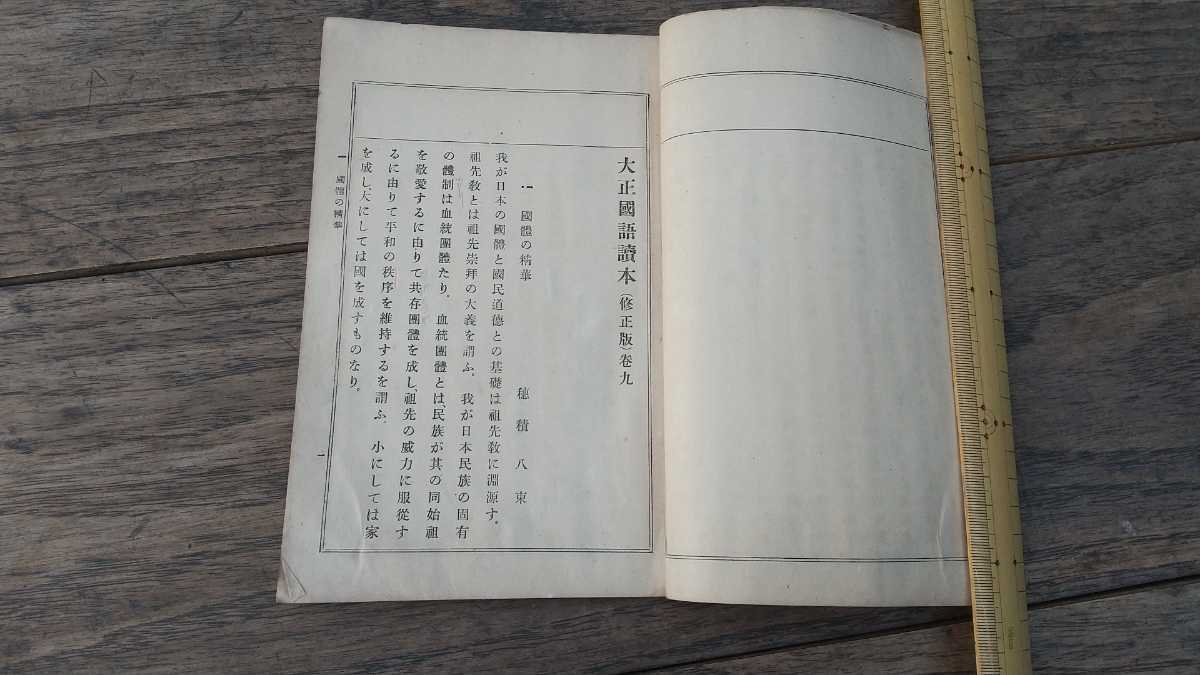 大正國語讀本（修正版）卷九
一 國體の精華
穗積八束
我が日本の國體と國民道德との基礎は祖先敎に淵源す。
祖先敎とは祖先崇拜の大義を謂ふ。我が日本民族の固有
の體制は血統團體たり。血統團體とは、民族が其の同始祖
を敬愛するに由りて共存團體を成し、祖先の威力に服從す
るに由りて平和の秩序を維持するを謂ふ。小にしては家
を成し、大にしては國を成すものなり。
一 國體の精華
一